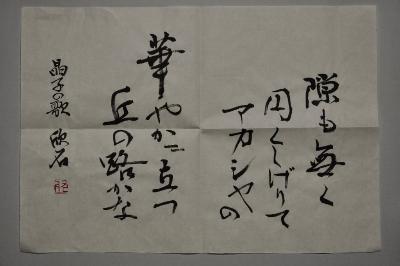 隙も無く
円くしげりて
アカシヤの
華やかに立つ
丘の路かな
晶子の歌 欣石